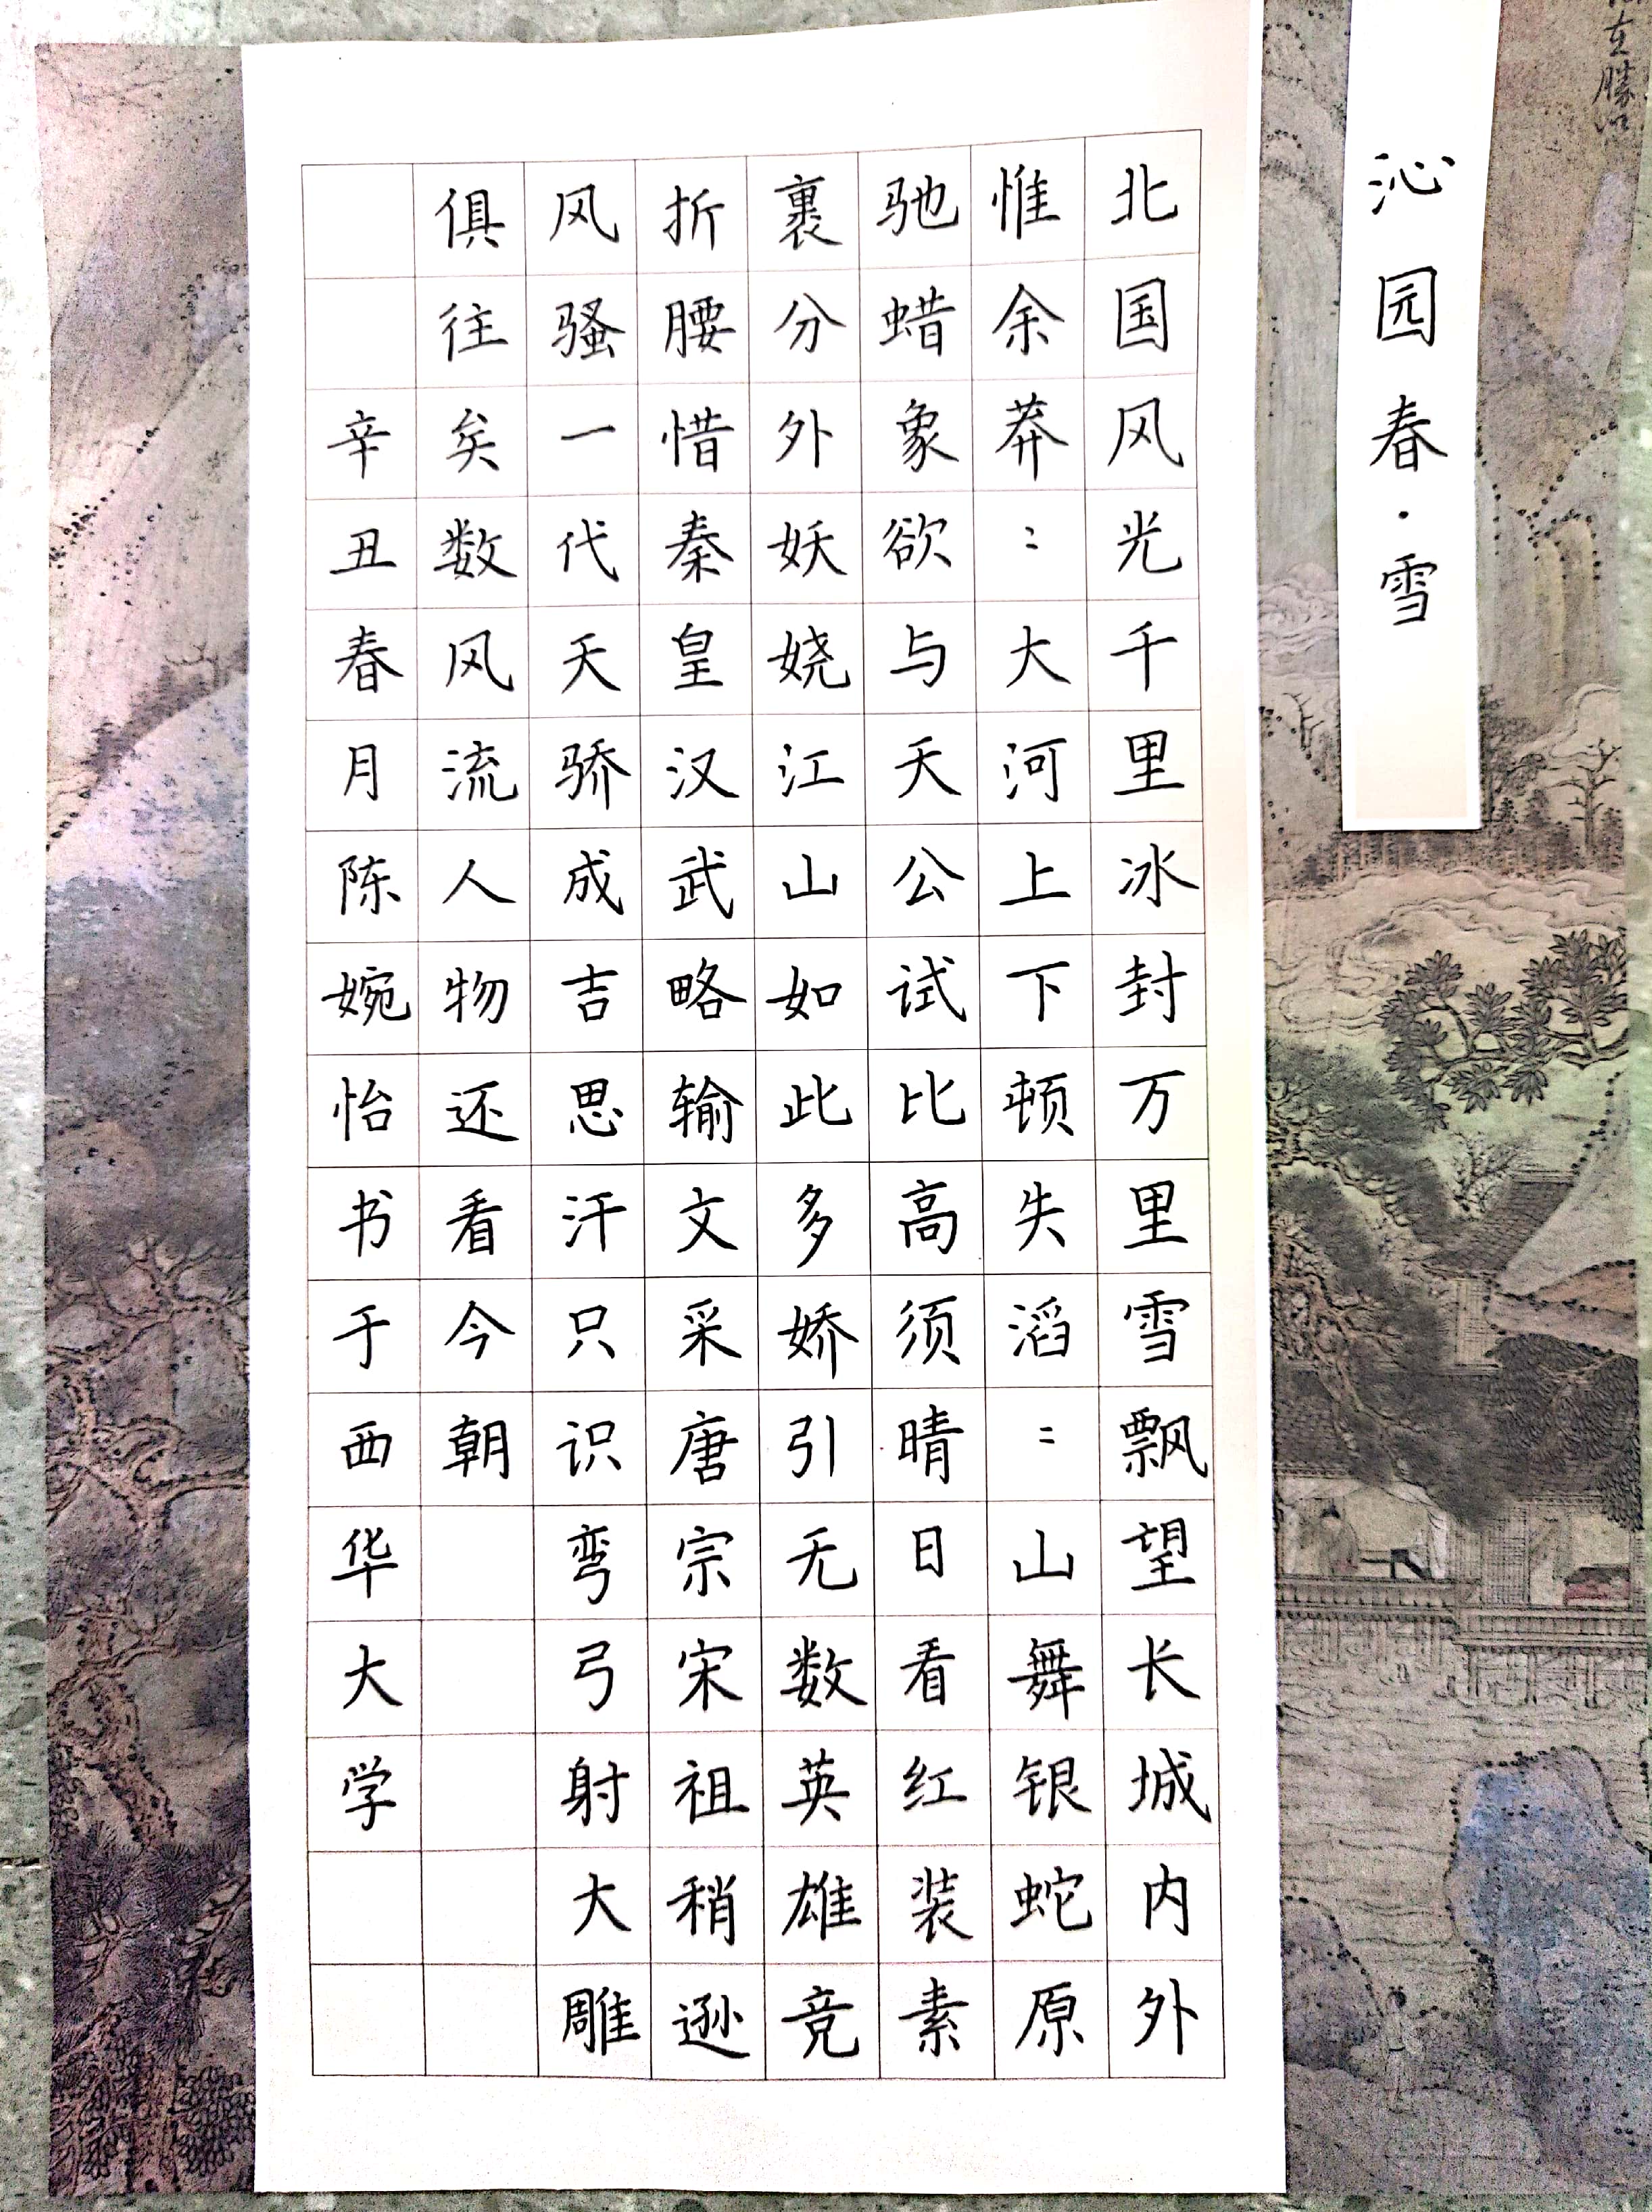 沁园春·雪
北国风光千里冰封万里雪飘望长城内外
惟余莽：大河上下顿失滔：山舞银蛇原
驰蜡象欲与天公试比高须晴日看红装素
裹分外妖娆江山如此多娇引无数英雄竞
折腰惜秦皇汉武略输文采唐宗宋祖稍逊
风骚一代天骄成吉思汗只识弯弓射大雕
俱往矣数风流人物还看今朝
辛丑春月陈婉怡书于西华大学